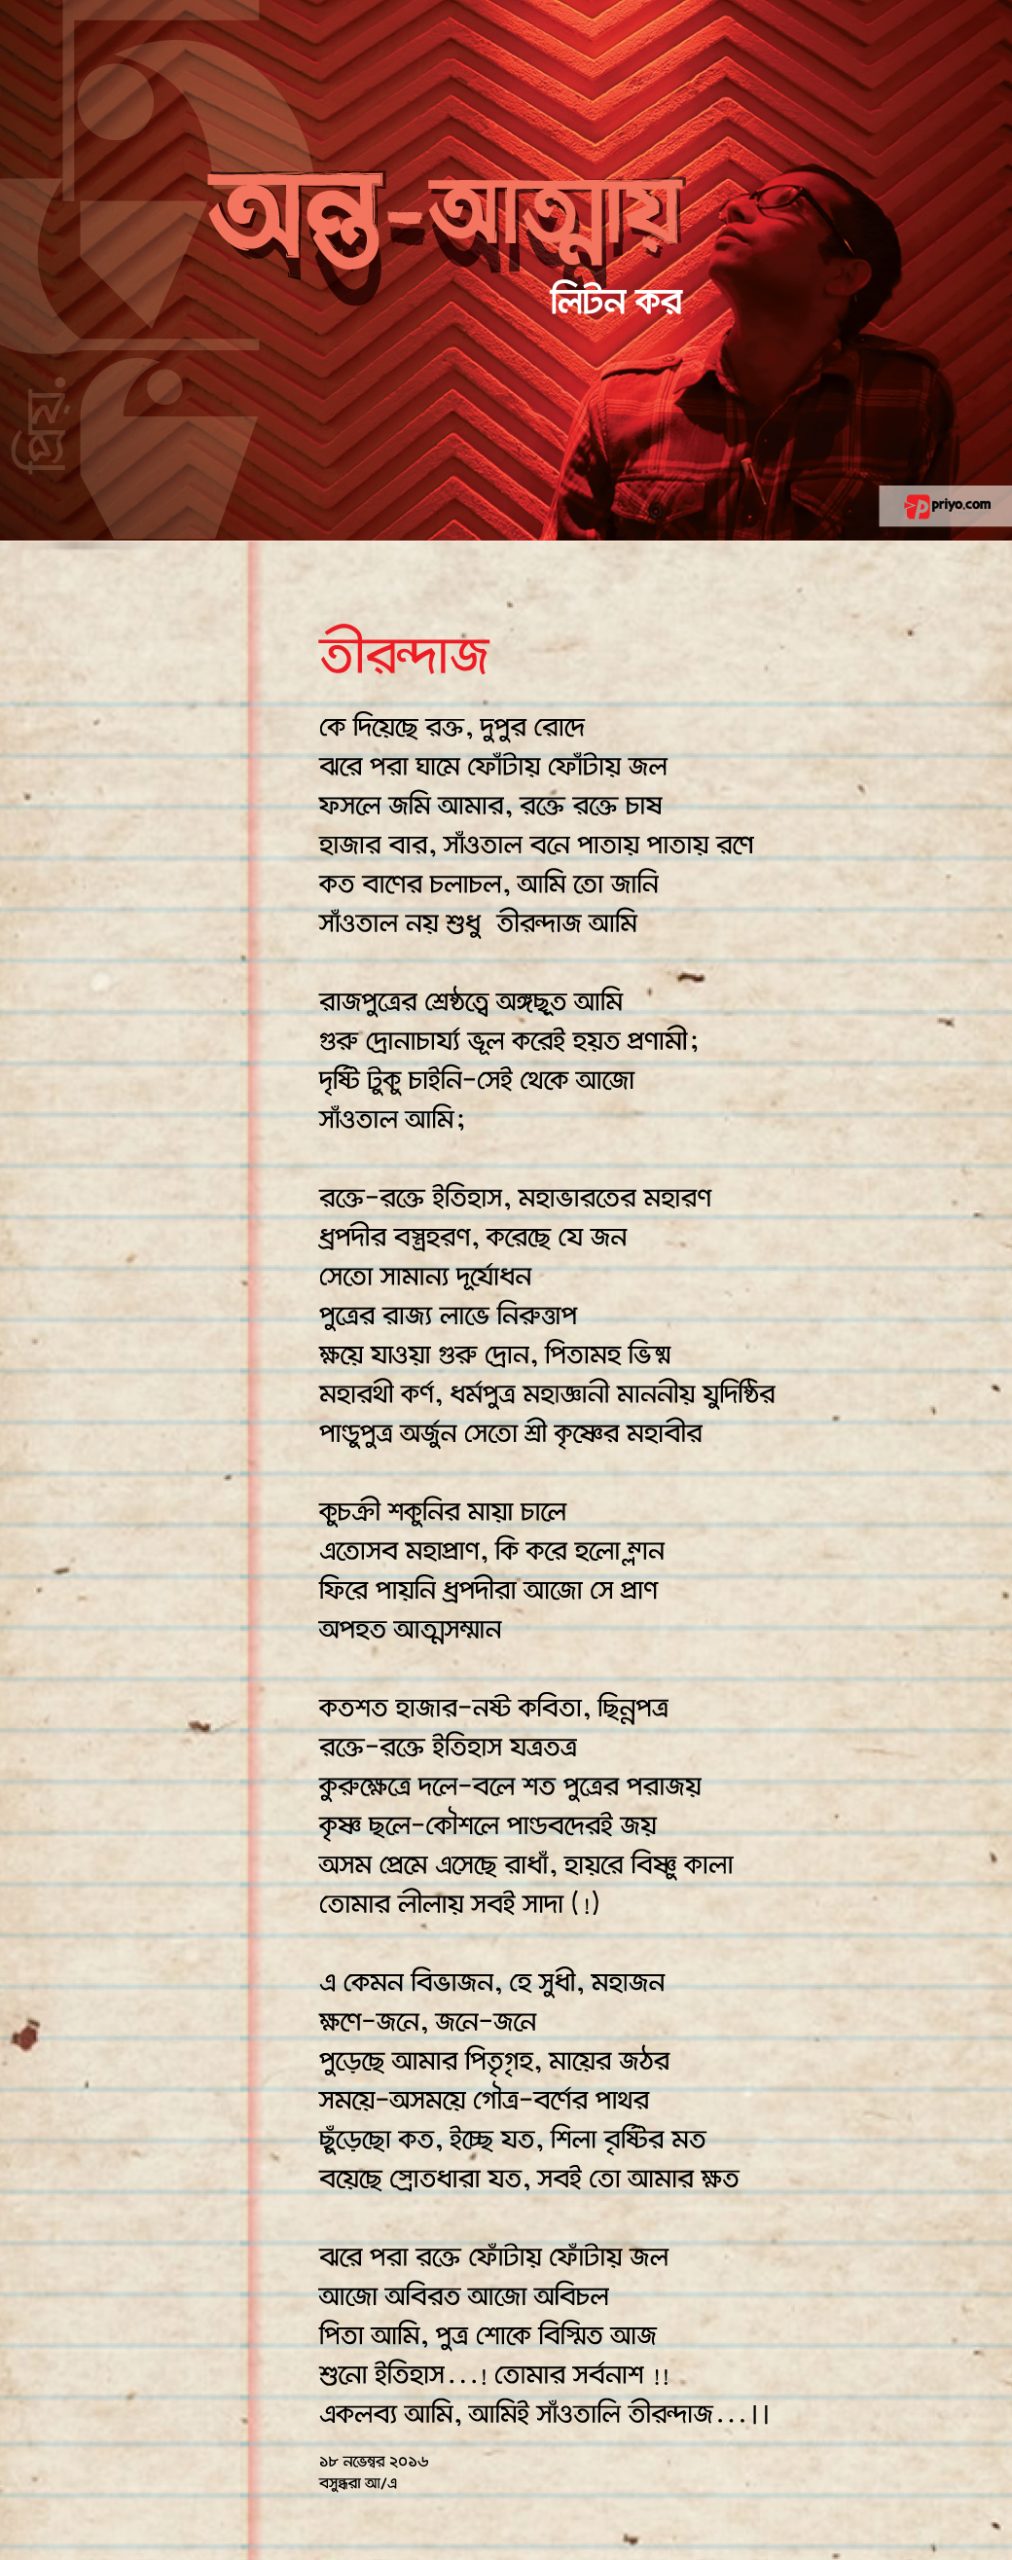 অন্ত-আত্মায়
লিটন কর
প্রিয়.
priyo.com
তীরন্দাজ
কে দিয়েছে রক্ত, দুপুর রোদে
ঝরে পরা ঘামে ফোঁটায় ফোঁটায় জল
ফসলে জমি আমার, রক্তে রক্তে চাষ
হাজার বার, সাঁওতাল বনে পাতায় পাতায় রণে
কত বাণের চলাচল, আমি তো জানি
সাঁওতাল নয় শুধু তীরন্দাজ আমি
রাজপুত্রের শ্রেষ্ঠত্বে অঙ্গছূত আমি
গুরু দ্রোনাচার্য্য ভূল করেই হয়ত প্রণামী;
দৃষ্টি টুকু চাইনি-সেই থেকে আজো
সাঁওতাল আমি;
রক্তে-রক্তে ইতিহাস, মহাভারতের মহারণ
ধ্রপদীর বস্ত্রহরণ, করেছে যে জন
সেতো সামান্য দূর্যোধন
পুত্রের রাজ্য লাভে নিরুত্তাপ
ক্ষয়ে যাওয়া গুরু দ্রোন, পিতামহ ভিষ্ম
মহারথী কর্ণ, ধর্মপুত্র মহাজ্ঞানী মাননীয় যুদিষ্ঠির
পাণ্ডুপুত্র অর্জুন সেতো শ্রী কৃষ্ণের মহাবীর
কুচক্রী শকুনির মায়া চালে
এতোসব মহাপ্রাণ, কি করে হলো ম্লান
ফিরে পায়নি ধ্রপদীরা আজো সে প্রাণ
অপহত আত্মসম্মান
কতশত হাজার-নষ্ট কবিতা, ছিন্নপত্র
রক্তে-রক্তে ইতিহাস যত্রতত্র
কুরুক্ষেত্রে দলে-বলে শত পুত্রের পরাজয়
কৃষ্ণ ছলে-কৌশলে পাণ্ডবদেরই জয়
অসম প্রেমে এসেছে রাধাঁ, হায়রে বিষ্ণু কালা
তোমার লীলায় সবই সাদা (!)
এ কেমন বিভাজন, হে সুধী, মহাজন
ক্ষণে-জনে, জনে-জনে
পুড়েছে আমার পিতৃগৃহ, মায়ের জঠর
সময়ে-অসময়ে গৌত্র-বর্ণের পাথর
ছুঁড়েছো কত, ইচ্ছে যত, শিলা বৃষ্টির মত
বয়েছে স্রোতধারা যত, সবই তো আমার ক্ষত
ঝরে পরা রক্তে ফোঁটায় ফোঁটায় জল
আজো অবিরত আজো অবিচল
পিতা আমি, পুত্র শোকে বিস্মিত আজ
শুনো ইতিহাস...! তোমার সর্বনাশ !!
একলব্য আমি, আমিই সাঁওতালি তীরন্দাজ...।।
১৮ নভেম্বর ২০১৬
বসুন্ধরা আ/এ